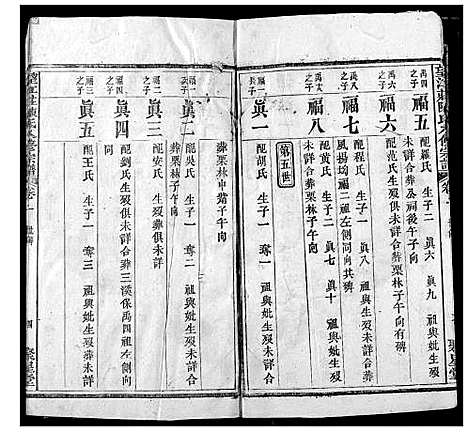 禹四之子
福五
配羅氏 生子二 真六 真九 祖與妣生歿
未詳合葬公祠後午向
禹六之子
福六
配范氏生歿俱未詳合葬栗林子午向有碑
禹八之子
福七
配程氏 生子一 真八 祖與妣生歿葬
風揚坳福二祖左側同向共碑
福八
配黃氏 生子二 真七 真十 祖與妣生歿
未詳合葬栗林子午向
第五世
福一長子
真一
配胡氏 生子一 奪一 祖與妣生歿未詳合
葬栗林中嘴子午向
福一次子
真二
配吳氏 生子一 奪二 祖與妣生歿未詳
葬栗林子午向
福二之子
真三
配安氏 生歿俱未詳
福三之子
真四
配劉氏生歿俱未詳合葬三溪保禹四祖左側
福四之子
真五
配王氏 生子一 奪三 祖與妣生歿葬未詳
四
聚星堂